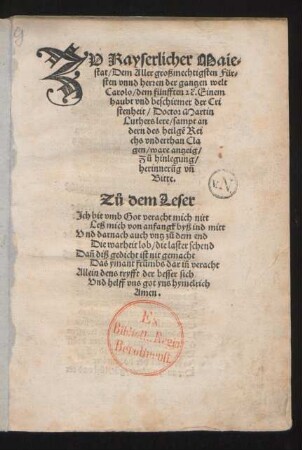 ZU Kayserlicher Maie-
stat/Dem Aller großmechtigsten Für-
sten vnnd herren der gantzen welt
Carolo/dem fünfften zc. Einem
haubt vnd beschiemer der Cri
stenheit/Doctor Martin
Luthers lere/sampt an
dern des heilgē Rei
chs vnderthan Cla
gen/ware anzeig/
Zů hinlegung/
herinnerūg vñ
Bitte.
Zů dem Leser
Ich bit vmb Got veracht mich nitt
Leß mich von anfangk byß ind mitt
Vnd darnach auch vntz zů dem end
Die warheit lob/die laster schend
Dañ diß gedicht ist nit gemacht
Das ymant frümbs dar iñ veracht
Allein dens tryfft der besser sich
Vnd helff vns got yns hymelrich
Amen.
Ex
Biblioth. Regia
Berolinensi.